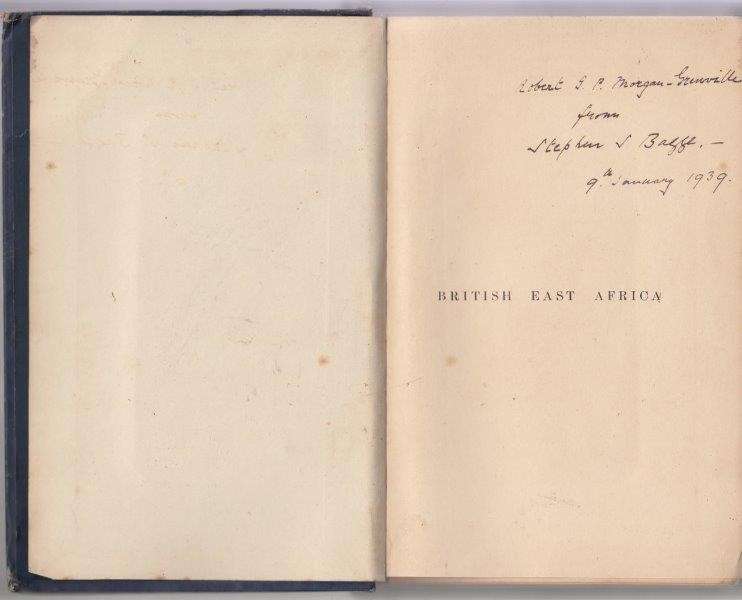 Robert G. P. Morgan-Grenville
from
Stephen S
9th January 1939.
BRITISH EAST AFRICA